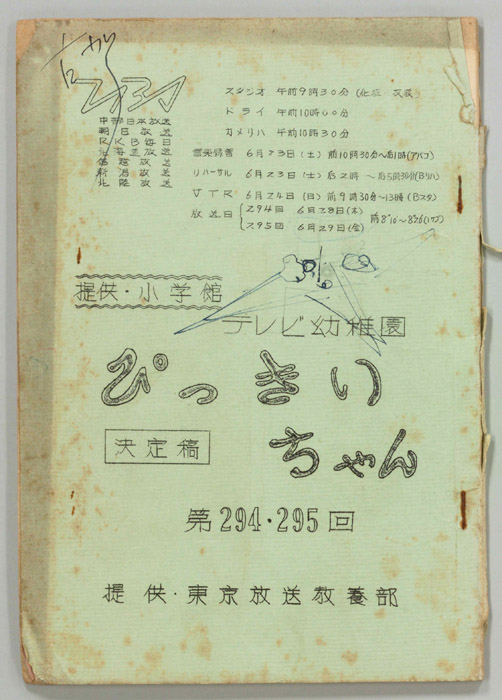 スタジオ 午前9時30分(化粧 衣裳)
ドライ 午前10時00分
カメリハ 午前10時30分
音楽録音 6月23日(土) 前10時30分〜后1時(アバコ)
リハーサル 6月23日(土) 后2時〜后5時30分(Bリハ)
VTR 6月24日(日) 前9時30分〜13時(Bスタ)
放送日 294回 6月28日(木)
295回 6月29日(金)
中部日本放送
朝日放送
RKB毎日
北海道放送
信越放送
新潟放送
北陸放送
提供・小学館
テレビ幼稚園
ぴっきい
ちゃん
決定稿
第294・295回
提供・東京放送教養部